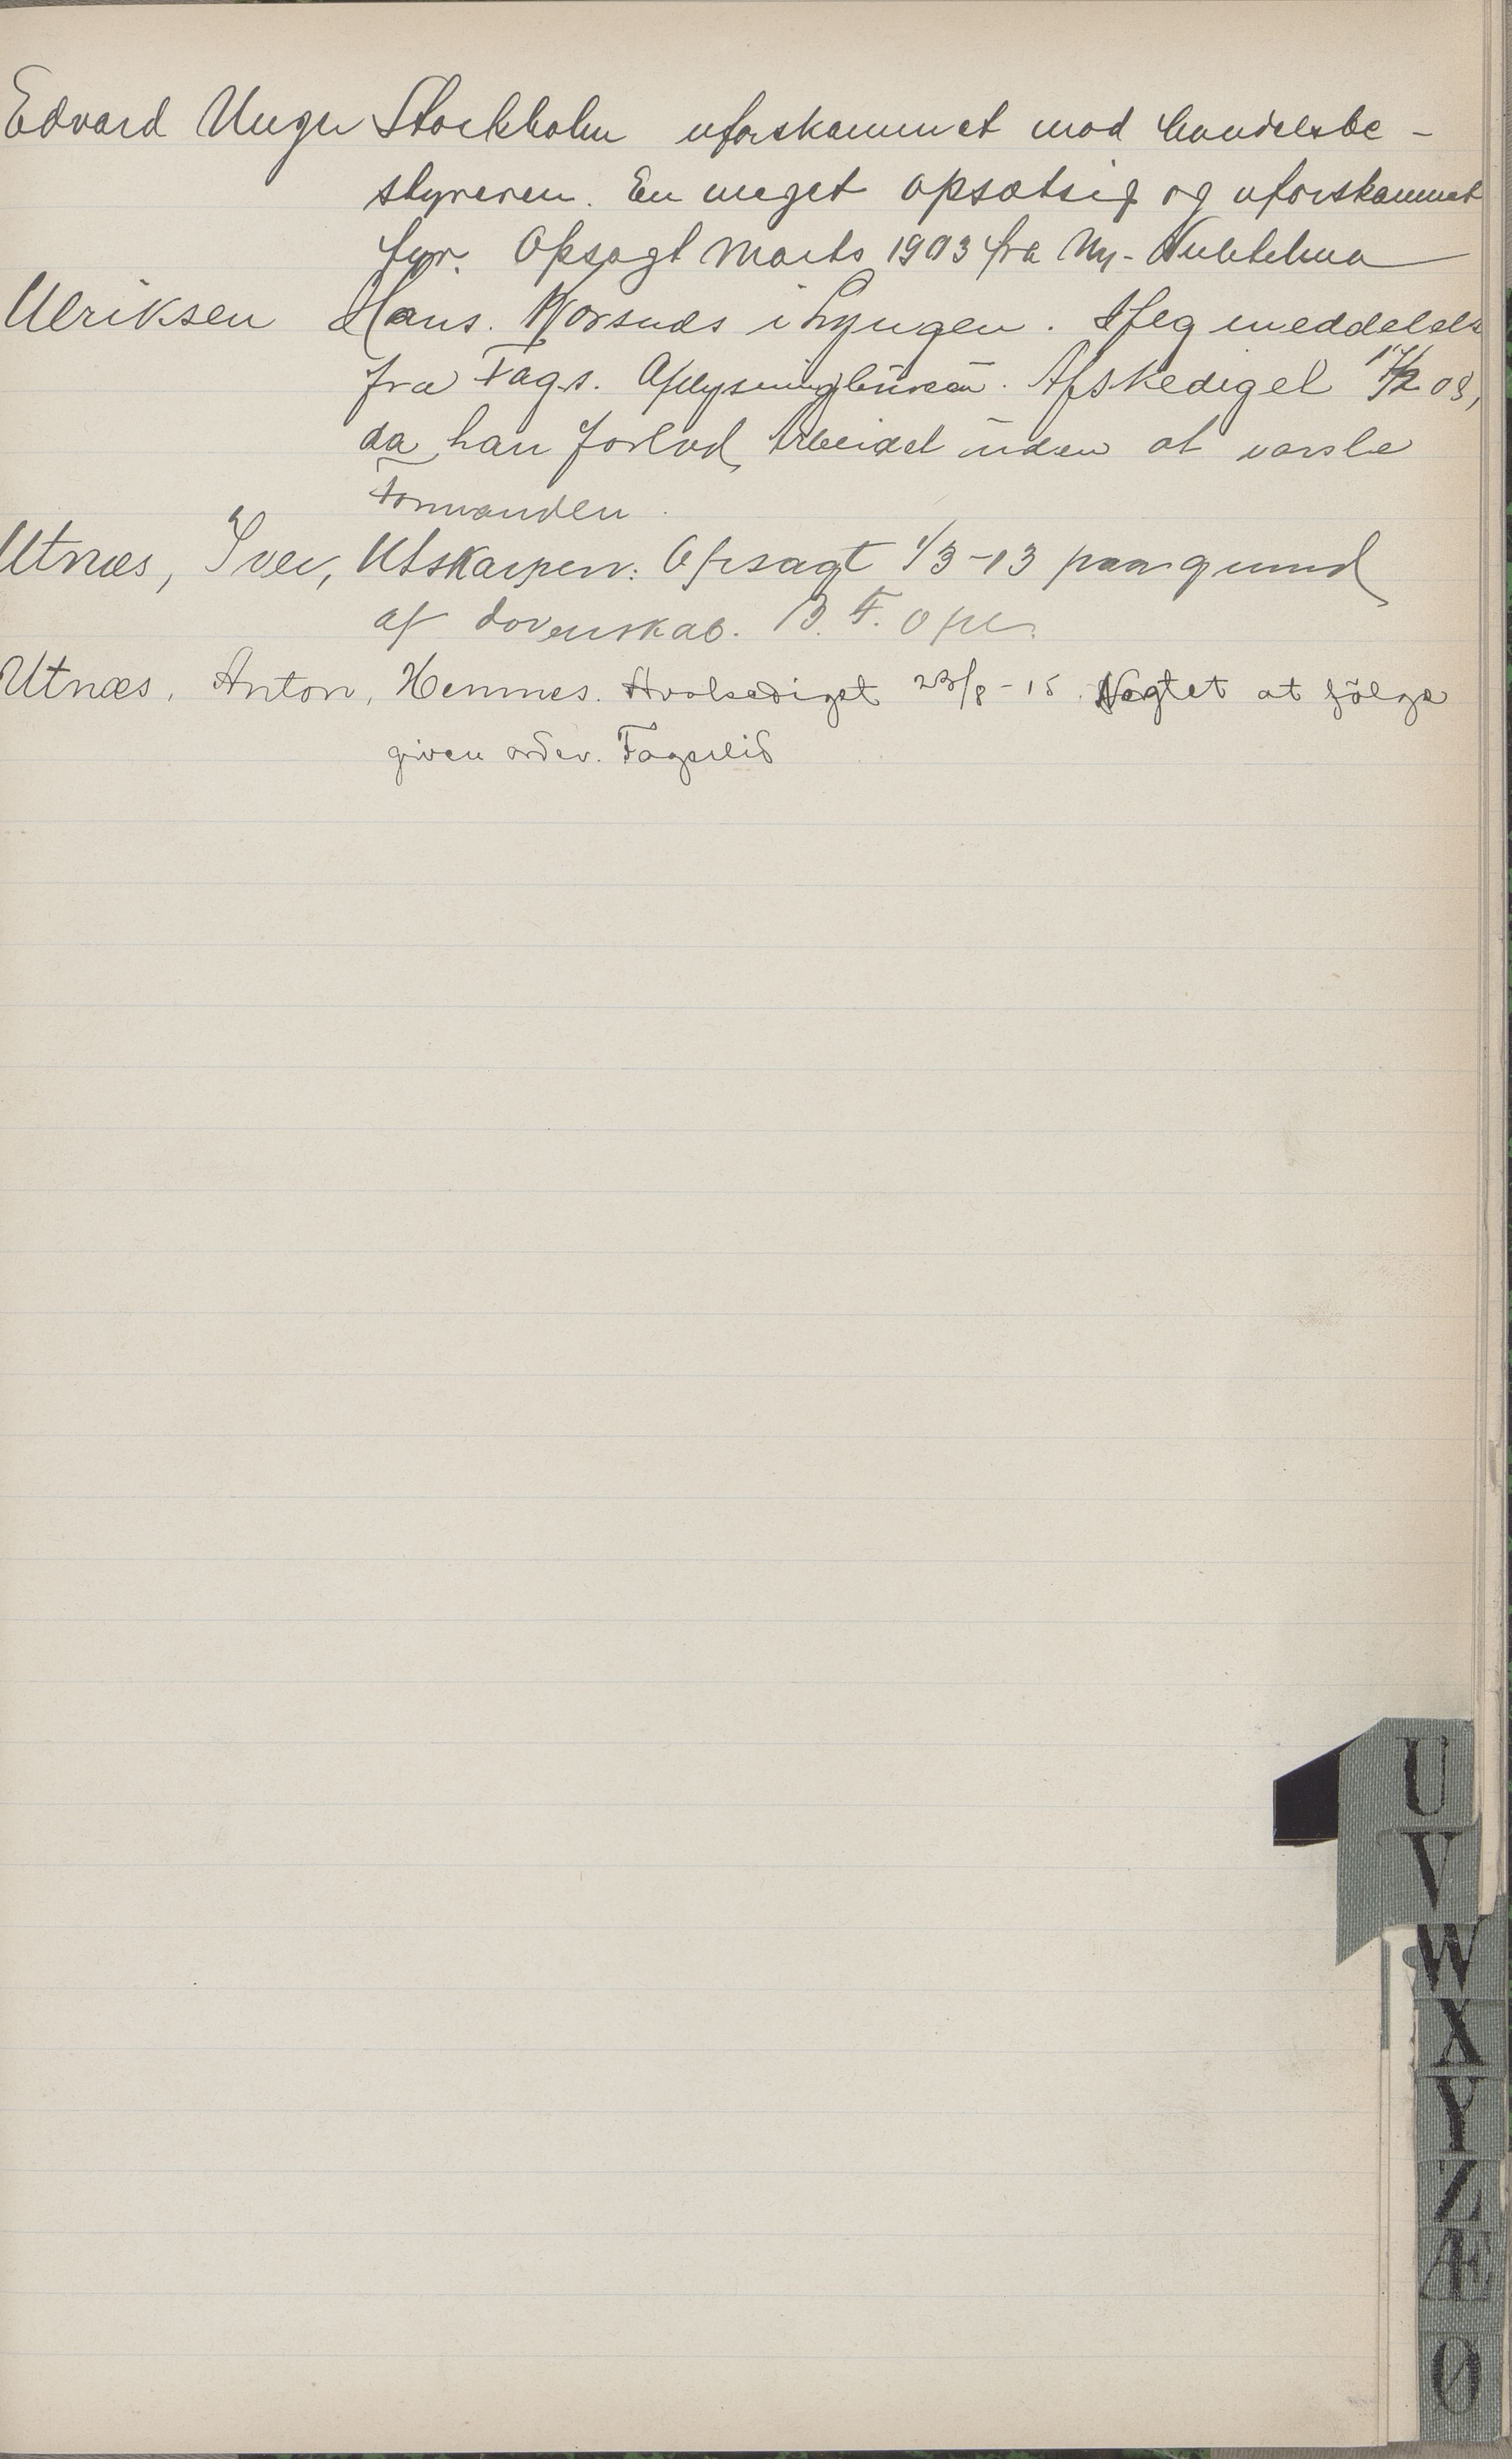 Edvard Unger Stockholm uforskammet mod handelsbe-
styreren. En meget opsætsig og uforskammet
fyr. Opsagt Marts 1903 fra Ny-Sulitelma
Ulriksen Hans. Horsnæs i Lyngen. Ifeg meddelelse
fra Fags. Oplysningbüreau. Afskediget 08,
da han forlod Arbeidet üden at varsle
Formanden.
Utnæs, Iver, Utskarpen: Opsagt 1/3-13 paa grund
af dovenskab. B. F. Opl.
Utnæs, Anton, Hemnes. Avskediget 23/8-15. Negtet at følge
given ordev. Fagerlid
U
V
W
X
Y
Z
Æ
Ø